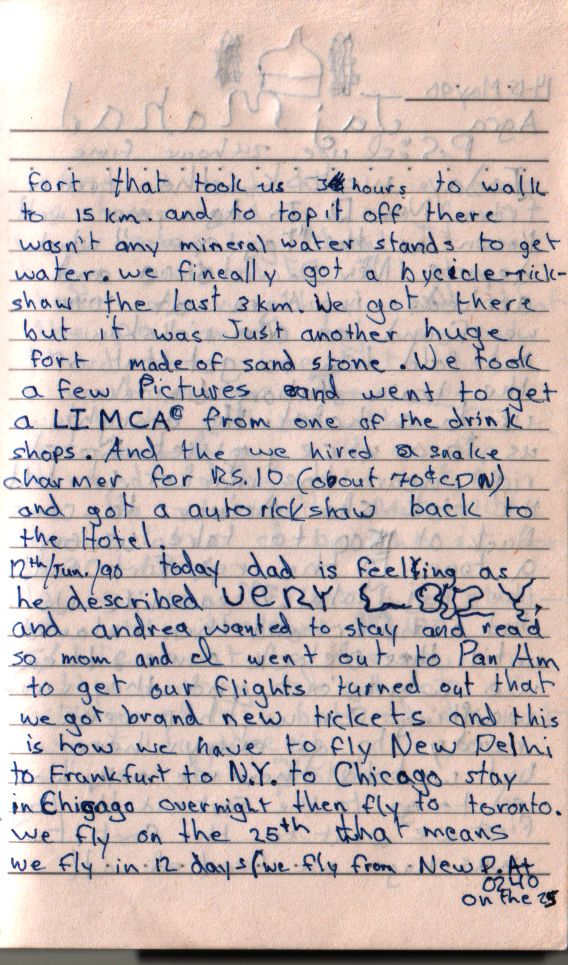 fort that took us 3 hours to walk
to 15 km. and to top it off there
wasn't any mineral water stands to get
water. we fineally got a bycicle-rick-
shaw the last 3 km. We got there
but it was Just another huge
fort made of sand stone. We took
a few Pictures and went to get
a LIMCA© from one of the drink
shops. And the we hired a snake
charmer for RS.10 (about 70¢ CDN)
and got a autorickshaw back to
the Hotel.
12th/Jun./90 today dad is feeling as
he described VERY
and andrea wanted to stay and read
so mom and I went out to Pan Am
to get our flights turned out that
we got brand new tickets and this
is how we have to fly New Delhi
to Frankfurt to N.Y. to Chicago stay
in Chigago overnight then fly to toronto.
we fly on the 25th that means
we fly in 12 days (we fly from New D. At
0240
on the 25